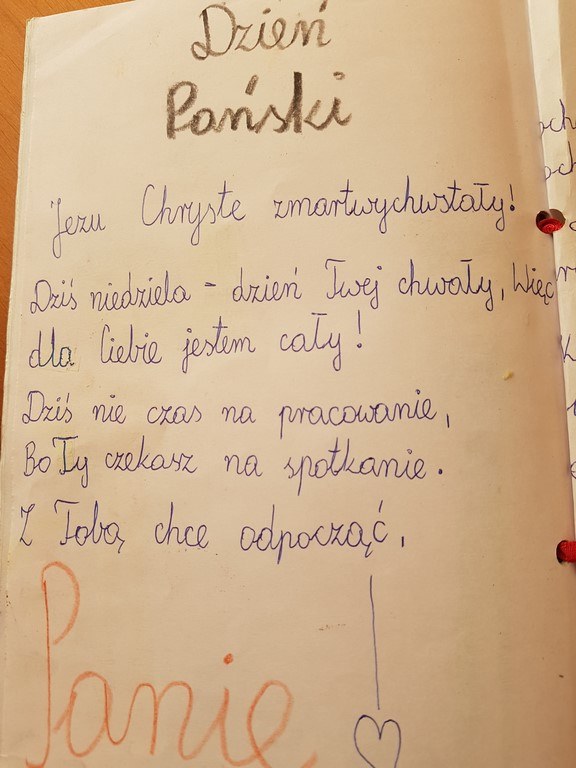 Dzień
Pański
Jezu Chryste zmartwychwstały!
Dziś niedziela - dzień Twej chwały, Więc
dla Ciebie jestem cały!
Dziś nie czas na pracowanie,
Bo Ty czekasz na spotkanie.
Z Tobą chce odpocząć,
Panie